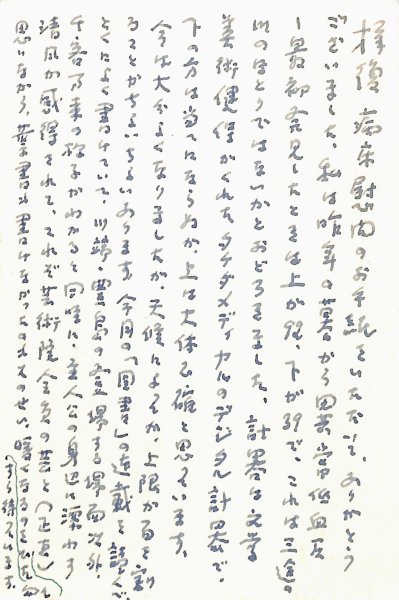 拝復 病床慰問のお手紙をいただいて、ありがとう
ございました。私は昨年の暮から異常低血圧
―最初発見したときは上が92、下が39で、これは三途の
川のほとりではないかとおどろきました。計器は文学
美術健保がくれたタケダメディカルのデジタル計器で、
下の方は当てにならぬが、上は大体正確と思ています。
今は大分よくなりましたが、天候によるか、上限が百を割
ることがちょいちょいあります。今月の「図書」の連載を読んで、
とくによく書けていて、川端・豊島の登場する場面以外、
千客万来の様子がわかると同時に、主人公の身辺に漂わす
清風が感得されて、これぞ芸術院会員の芸と
思いながら、葉書は書けなかったのは
まち得ています。